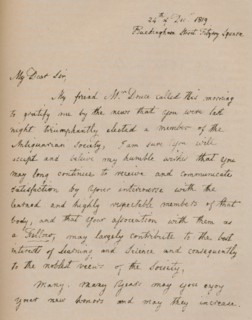 24th of 1819
Buckingham Street Fitzroy Square
My Dear Sir,
My friend Mrs called this morning
to gratify me by the news that you were last
night triumphantly elected a member of the
Antiquarian Society, I am sure you will
accept and my humble wishes that you
may long continue to receive and communicate
Satisfaction by your intercourse with the
learned and highly respectable members of that
body, and that your association with them as
a Fellow, may largely contribute to the best
interests of Learning and Science and consequently
to the noblest views of the Society.
Many, many Years may you enjoy
your new honors and may they increase.